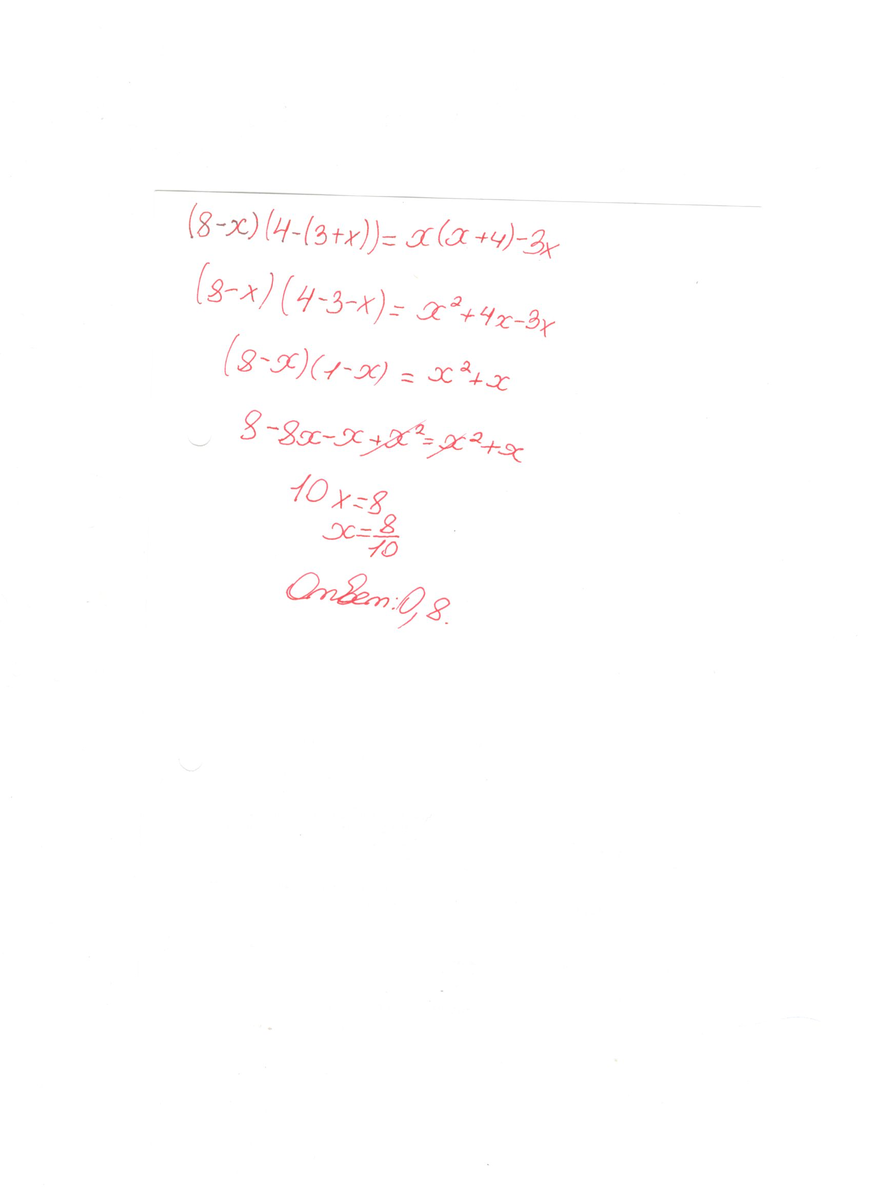 (8-x)(4-(3+x))=x(x+4)-3x
(8-x)(4-3-x)=x²+4x-3x
(8-x)(1-x)=x²+x
8-8x-x+x²=x²+x
10x=8
x=8/10
Ответ: 0,8.